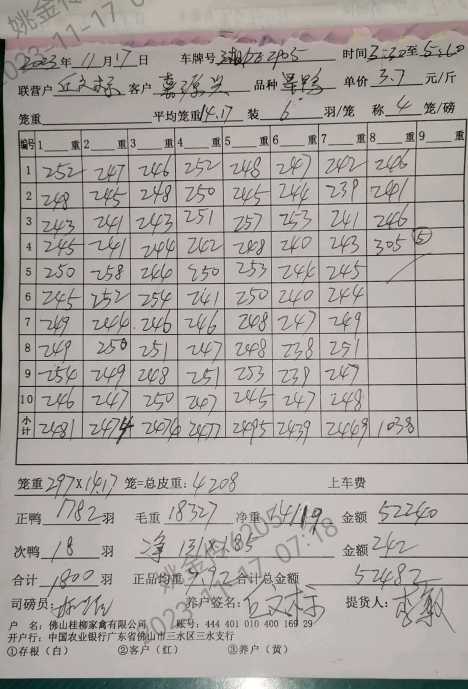 2023年 11月17日 车牌号 2905 时间3:30至5:60
联营户 丘文标 客户 品种 单价 3.7 元/斤
笼重 平均笼重14.17 装 6 羽/笼 称 4 笼/磅
编号 1 重 2 重 3 重 4 重 5 重 6 重 7 重 8 重 9 重
1 252 247 246 252 248 247 242 246
2 248 245 248 250 245 244 239 241
3 243 241 243 251 257 253 241 246
4 245 241 244 242 248 240 243 305 ⑤
5 250 258 244 250 253 246 245
6 245 252 254 241 250 240 244
7 249 244 246 246 248 247 249
8 249 250 251 247 248 238 251
9 254 249 248 251 253 239 247
10 246 247 250 247 245 247 248
小计 2481 2474 2474 2477 2495 2439 2449 1038
笼重 297×14.17 笼=总皮重: 4208 上车费
正鸭 1782 羽 毛重 18327 净重 14119 金额 52240
次鸭 18 羽 净 131×1.85 金额 242
合计 1800 羽 正品均重 7.92 合计总金额 52482
司磅员: 养户签名: 丘文标 提货人:
户 名: 佛山桂柳家禽有限公司 账号: 444 401 010 400 169 29
开户行: 中国农业银行广东省佛山市三水区三水支行
①存根（白） ②客户（红） ③养户（黄）
2023-11-17 07:18